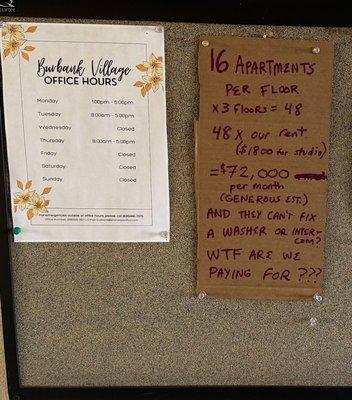 Burbank Village
OFFICE HOURS
Monday 1:00pm - 5:00pm
Tuesday 8:00am - 5:00pm
Wednesday Closed
Thursday 8:00am - 5:00pm
Friday Closed
Saturday Closed
Sunday Closed
For emergencies outside of office hours, please call
16 APARTMENTS
PER FLOOR
x 3 FLOORS = 48
48 x our rent
($1800 for studio)
= $72,000
per month
(GENEROUS EST.)
AND THEY CAN'T FIX
A WASHER OR INTER-
COM?
WTF ARE WE
PAYING FOR ???